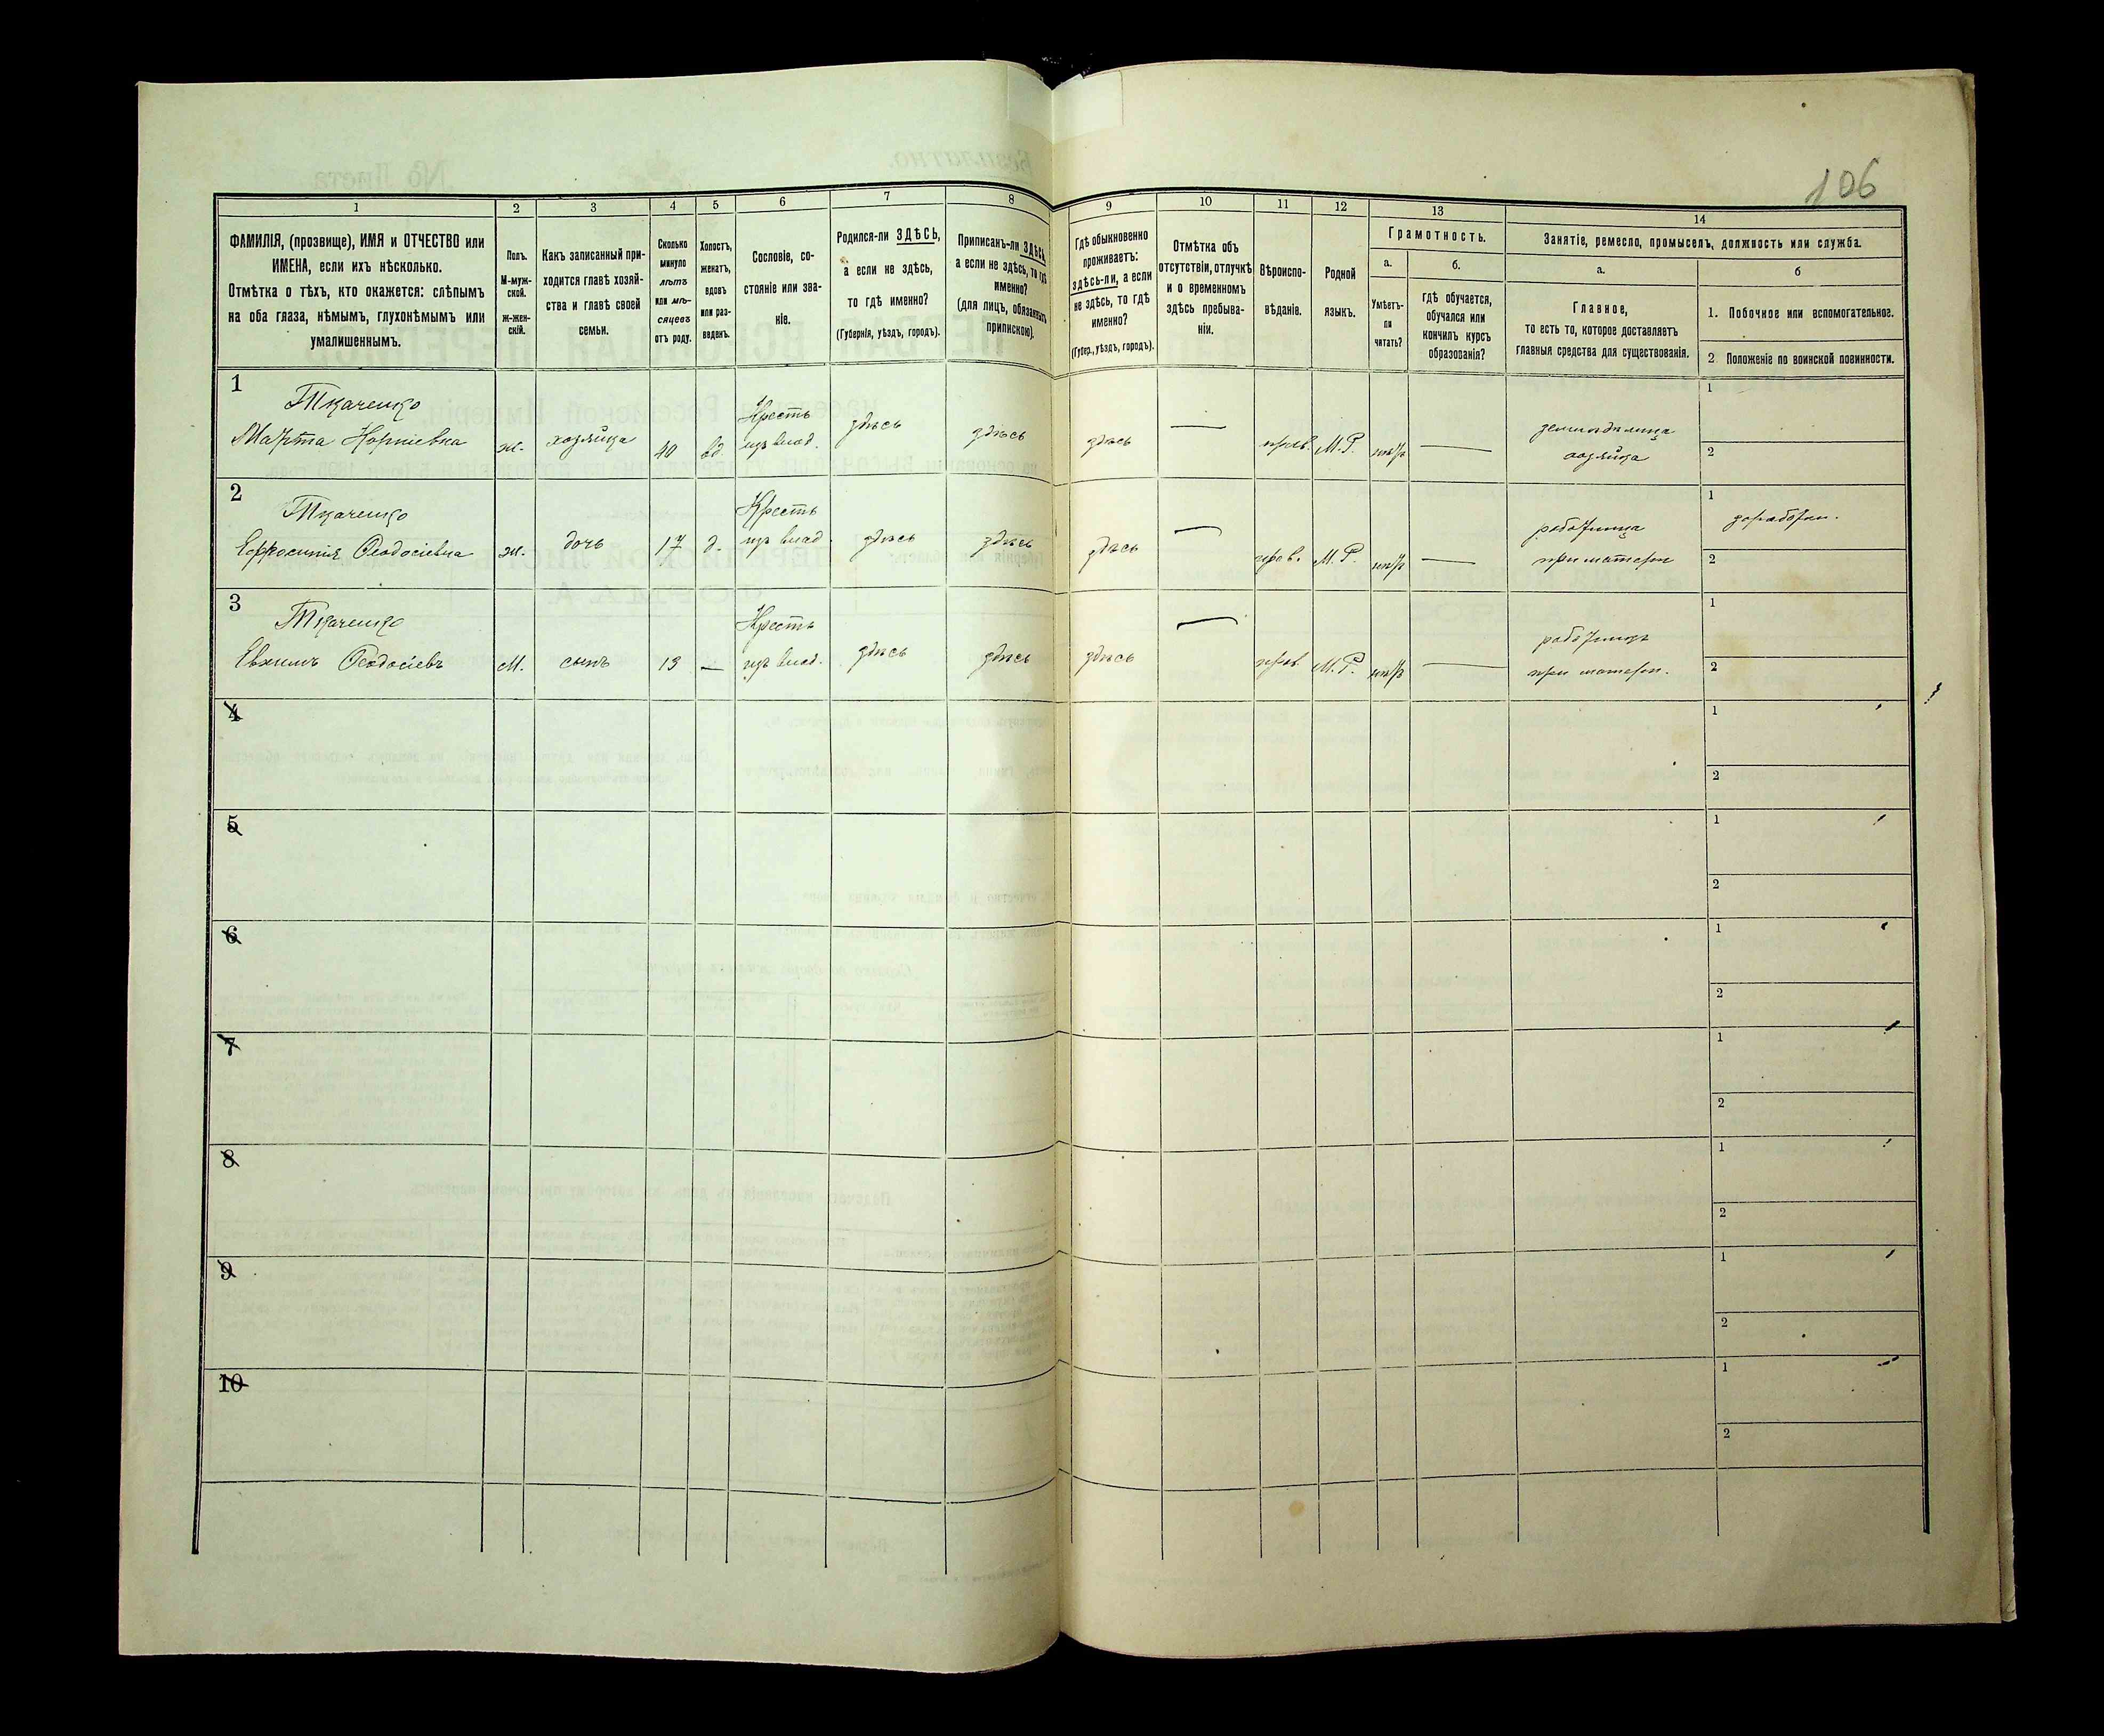 106
1
2
3
4
5
6
7
8
9
10
11
12
13
14
ФАМИЛІЯ, (прозвище), ИМЯ и ОТЧЕСТВО или
ИМЕНА, если ихъ нѣсколько.
Отмѣтка о тѣхъ, кто окажется: слѣпымъ
на оба глаза, нѣмымъ, глухонѣмымъ или
умалишеннымъ.
Полъ.
М-муж-
ской.
ж-жен-
скій.
Какъ записанный при-
ходится главѣ хозяй-
ства и главѣ своей
семьи.
Сколько
минуло
лѣтъ
или мѣ-
сяцевъ
отъ роду.
Холостъ,
женатъ,
вдовъ
или раз-
веденъ.
Сословіе, со-
стояніе или зва-
ніе.
Родился-ли ЗДѢСЬ,
а если не здѣсь,
то гдѣ именно?
(Губернія, уѣздъ, городъ).
Приписанъ-ли ЗДѢСЬ,
а если не здѣсь, то гдѣ
именно?
(для лицъ, обязанныхъ
припискою).
Гдѣ обыкновенно
проживаетъ:
здѣсь-ли, а если
не здѣсь, то гдѣ
именно?
(Губер., уѣздъ, городъ).
Отмѣтка объ
отсутствіи, отлучкѣ
и о временномъ
здѣсь пребыва-
ніи.
Вѣроиспо-
вѣданіе.
Родной
языкъ.
Грамотность.
а.
Умѣетъ-
ли
читать?
б.
гдѣ обучается,
обучался или
кончилъ курсъ
образованія?
Занятіе, ремесло, промыселъ, должность или служба.
а.
Главное,
то есть то, которое доставляетъ
главныя средства для существованія.
б
1. Побочное или вспомогательное.
2. Положеніе по воинской повинности.
1
Ткаченко
Марта Корніевна
ж.
хозяйка
40
вд.
Крестъ
изъ влад.
здѣсь
здѣсь
здѣсь
—
прав.
М.Р.
нѣтъ
—
земледѣлица
хозяйка
1
2
2
Ткаченко
Ефросинія Ѳеодосіевна
ж.
дочь
17
д.
Крестъ
изъ влад.
здѣсь
здѣсь
здѣсь
—
прав.
М.Р.
нѣтъ
—
работница
при матери
1
2
3
Ткаченко
Евхимъ Ѳеодосіевъ
М.
сынъ
13
—
Крестъ
изъ влад.
здѣсь
здѣсь
здѣсь
—
прав.
М.Р.
нѣтъ
—
работникъ
при матери.
1
2
4
1
2
5
1
2
6
1
2
7
1
2
8
1
2
9
1
2
10
1
2